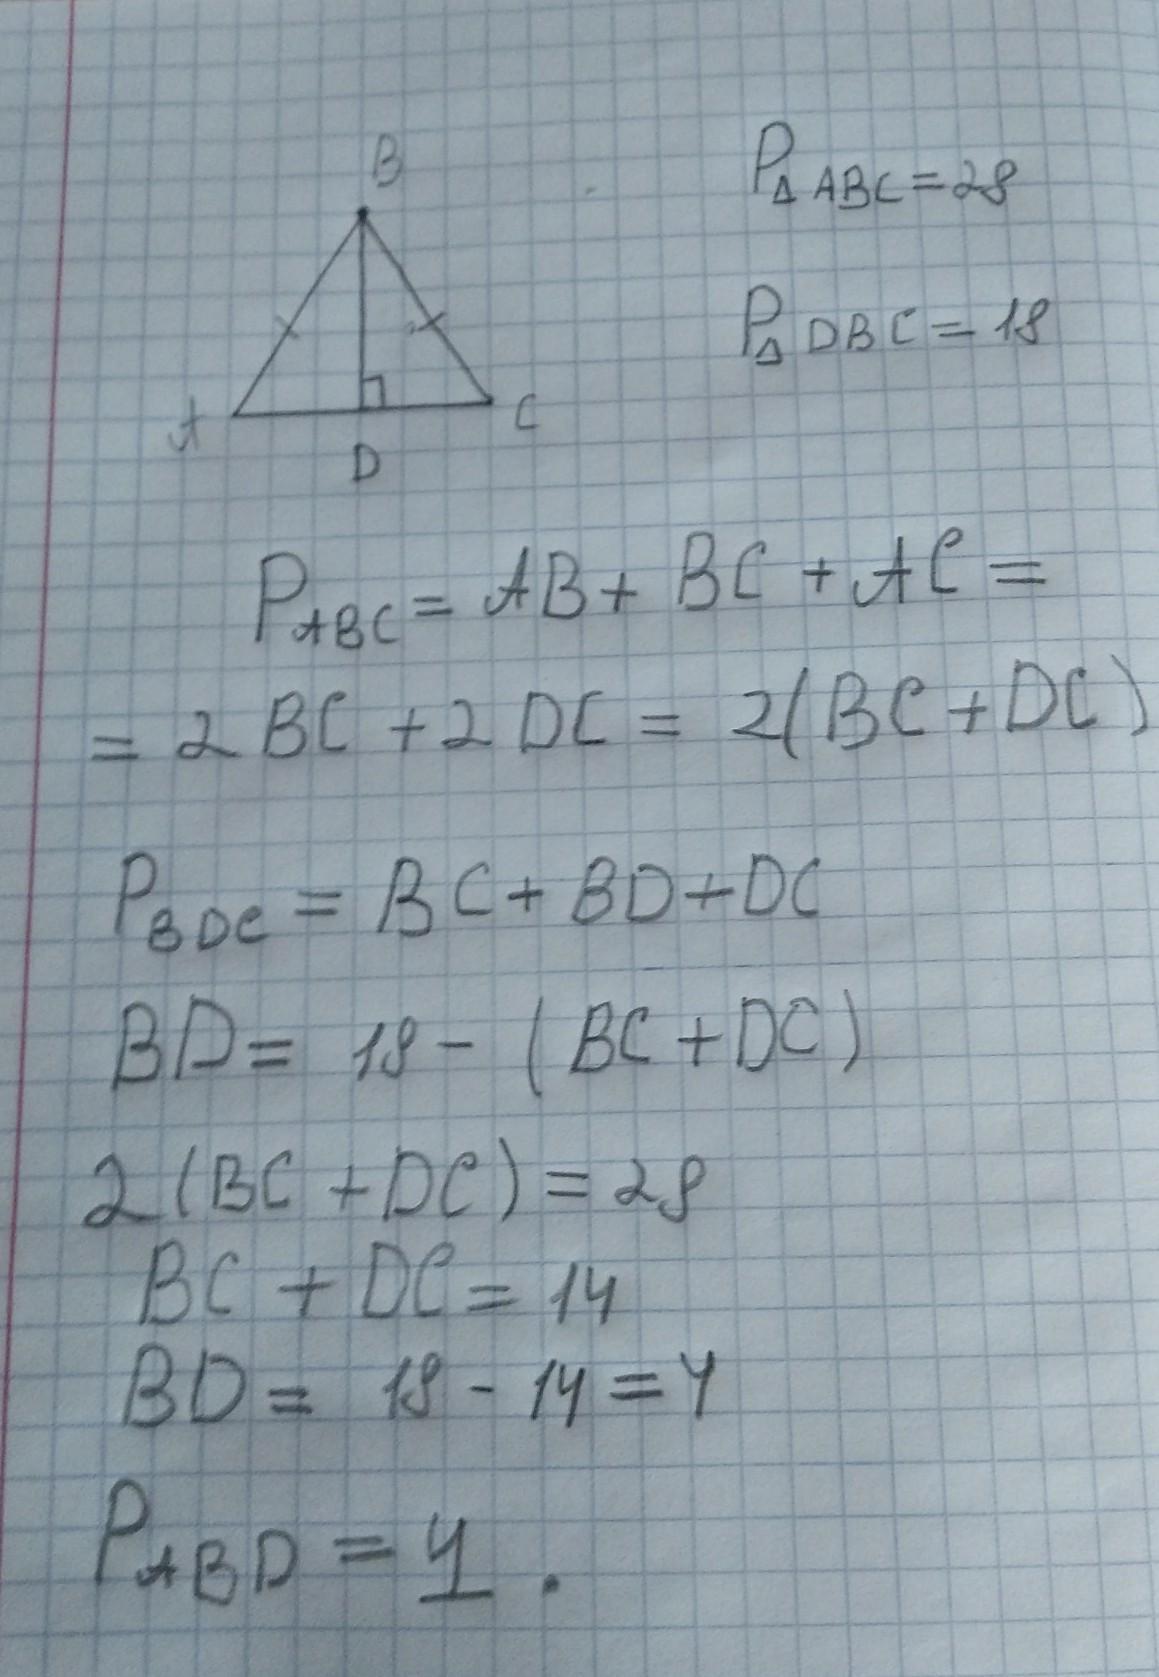 B
A
D
C
P△ABC=28
P△DBC=18
P ABC = AB + BC + AC =
= 2 BC + 2 DC = 2(BC + DC)
P BDC = BC + BD + DC
BD = 18 - (BC + DC)
2(BC + DC) = 28
BC + DC = 14
BD = 18 - 14 = 4
P ABD = 4.